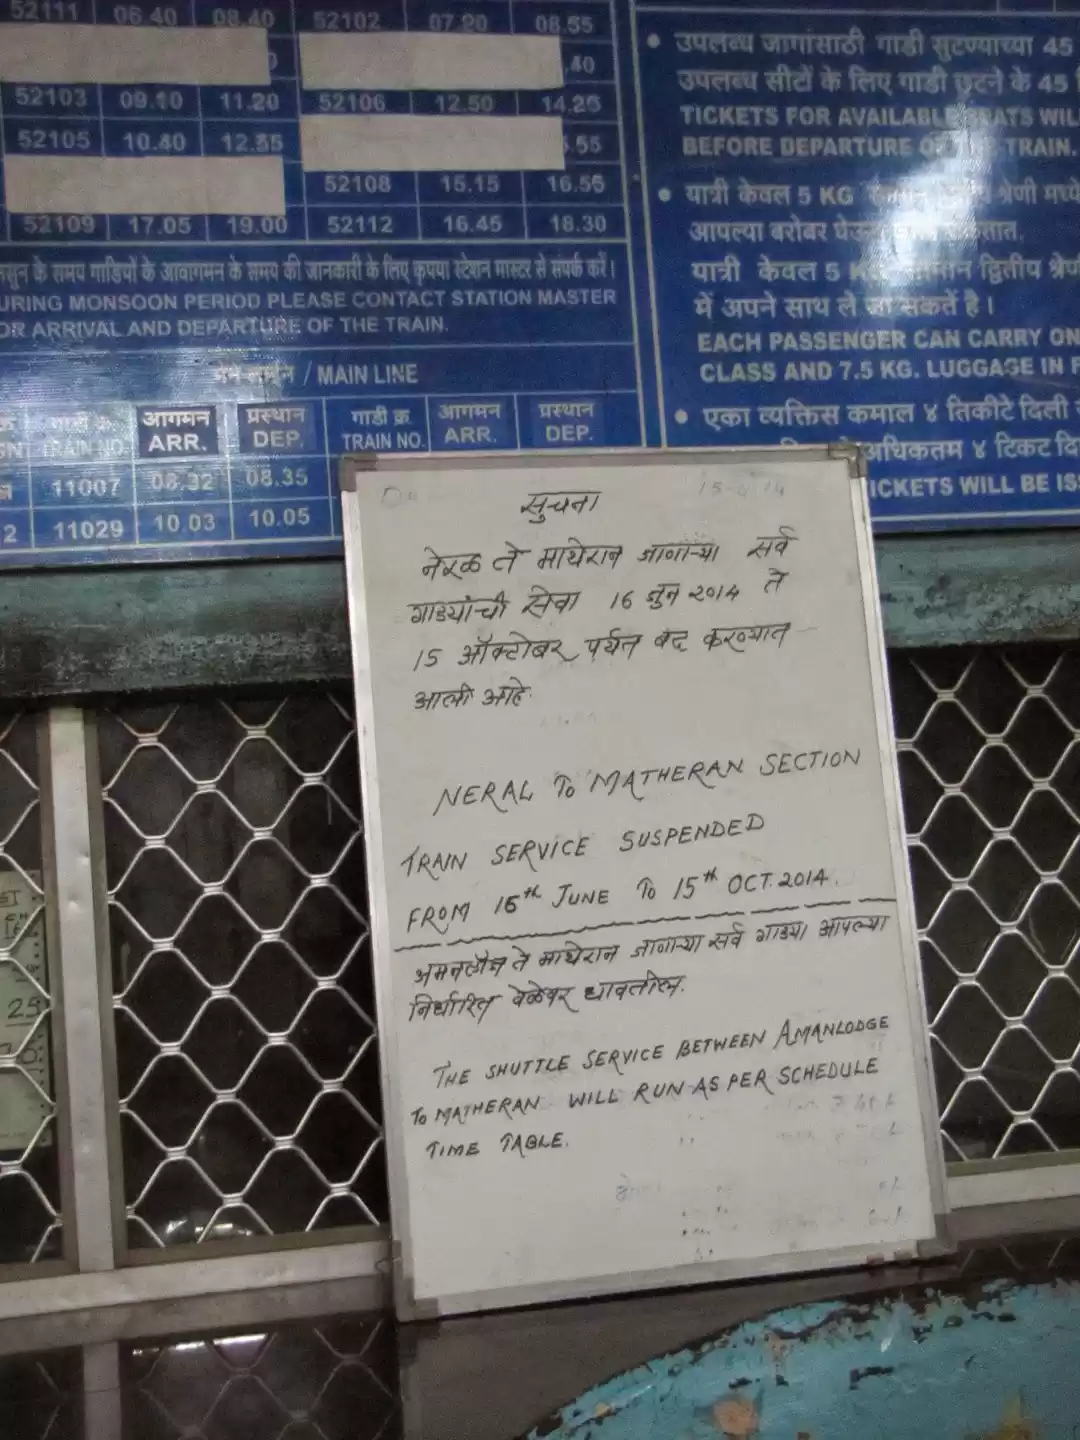 52111 06.40 08.40 52102 07.20 08.55
.40
52103 09.10 11.20 52106 12.50 14.25
52105 10.40 12.55
.55
52108 15.15 16.55
52109 17.05 19.00 52112 16.45 18.30
के समय गाडियों के आवागमन के समय की जानकारी के लिए कृपया स्टेशन मास्टर से संपर्क करें।
URING MONSOON PERIOD PLEASE CONTACT STATION MASTER
OR ARRIVAL AND DEPARTURE OF THE TRAIN.
/ MAIN LINE
आगमन प्रस्थान गाडी क्र. आगमन प्रस्थान
TRAIN NO. ARR. DEP. TRAIN NO. ARR. DEP.
11007 08.32 08.35
2 11029 10.03 10.05
• उपलब्ध जागांसाठी गाडी सुटण्याच्या 45
उपलब्ध सीटों के लिए गाडी छूटने के 45
TICKETS FOR AVAILABLE SEATS WIL
BEFORE DEPARTURE OF THE TRAIN.
• यात्री केवल 5 KG श्रेणी मध्ये
आपल्या बरोबर
यात्री केवल 5 द्वितीय श्रेणी
में अपने साथ ले जा सकतें है।
EACH PASSENGER CAN CARRY ON
CLASS AND 7.5 KG. LUGGAGE IN F
• एका व्यक्तिस कमाल ४ तिकीटे दिली
अधिकतम ४ टिकट दि
ICKETS WILL BE IS
सुचना
नेरळ ते माथेरान जाणाऱ्या सर्व
गाड्यांची सेवा 16 जुन 2014 ते
15 ऑक्टोबर पर्यंत बंद करण्यात
आली आहे.
NERAL TO MATHERAN SECTION
TRAIN SERVICE SUSPENDED
FROM 16th JUNE TO 15th OCT. 2014.
अमनलॉज ते माथेरान जाणाऱ्या सर्व गाड्या आपल्या
निर्धारित वेळेवर धावतील.
THE SHUTTLE SERVICE BETWEEN AMANLODGE
TO MATHERAN WILL RUN AS PER SCHEDULE
TIME TABLE.
25